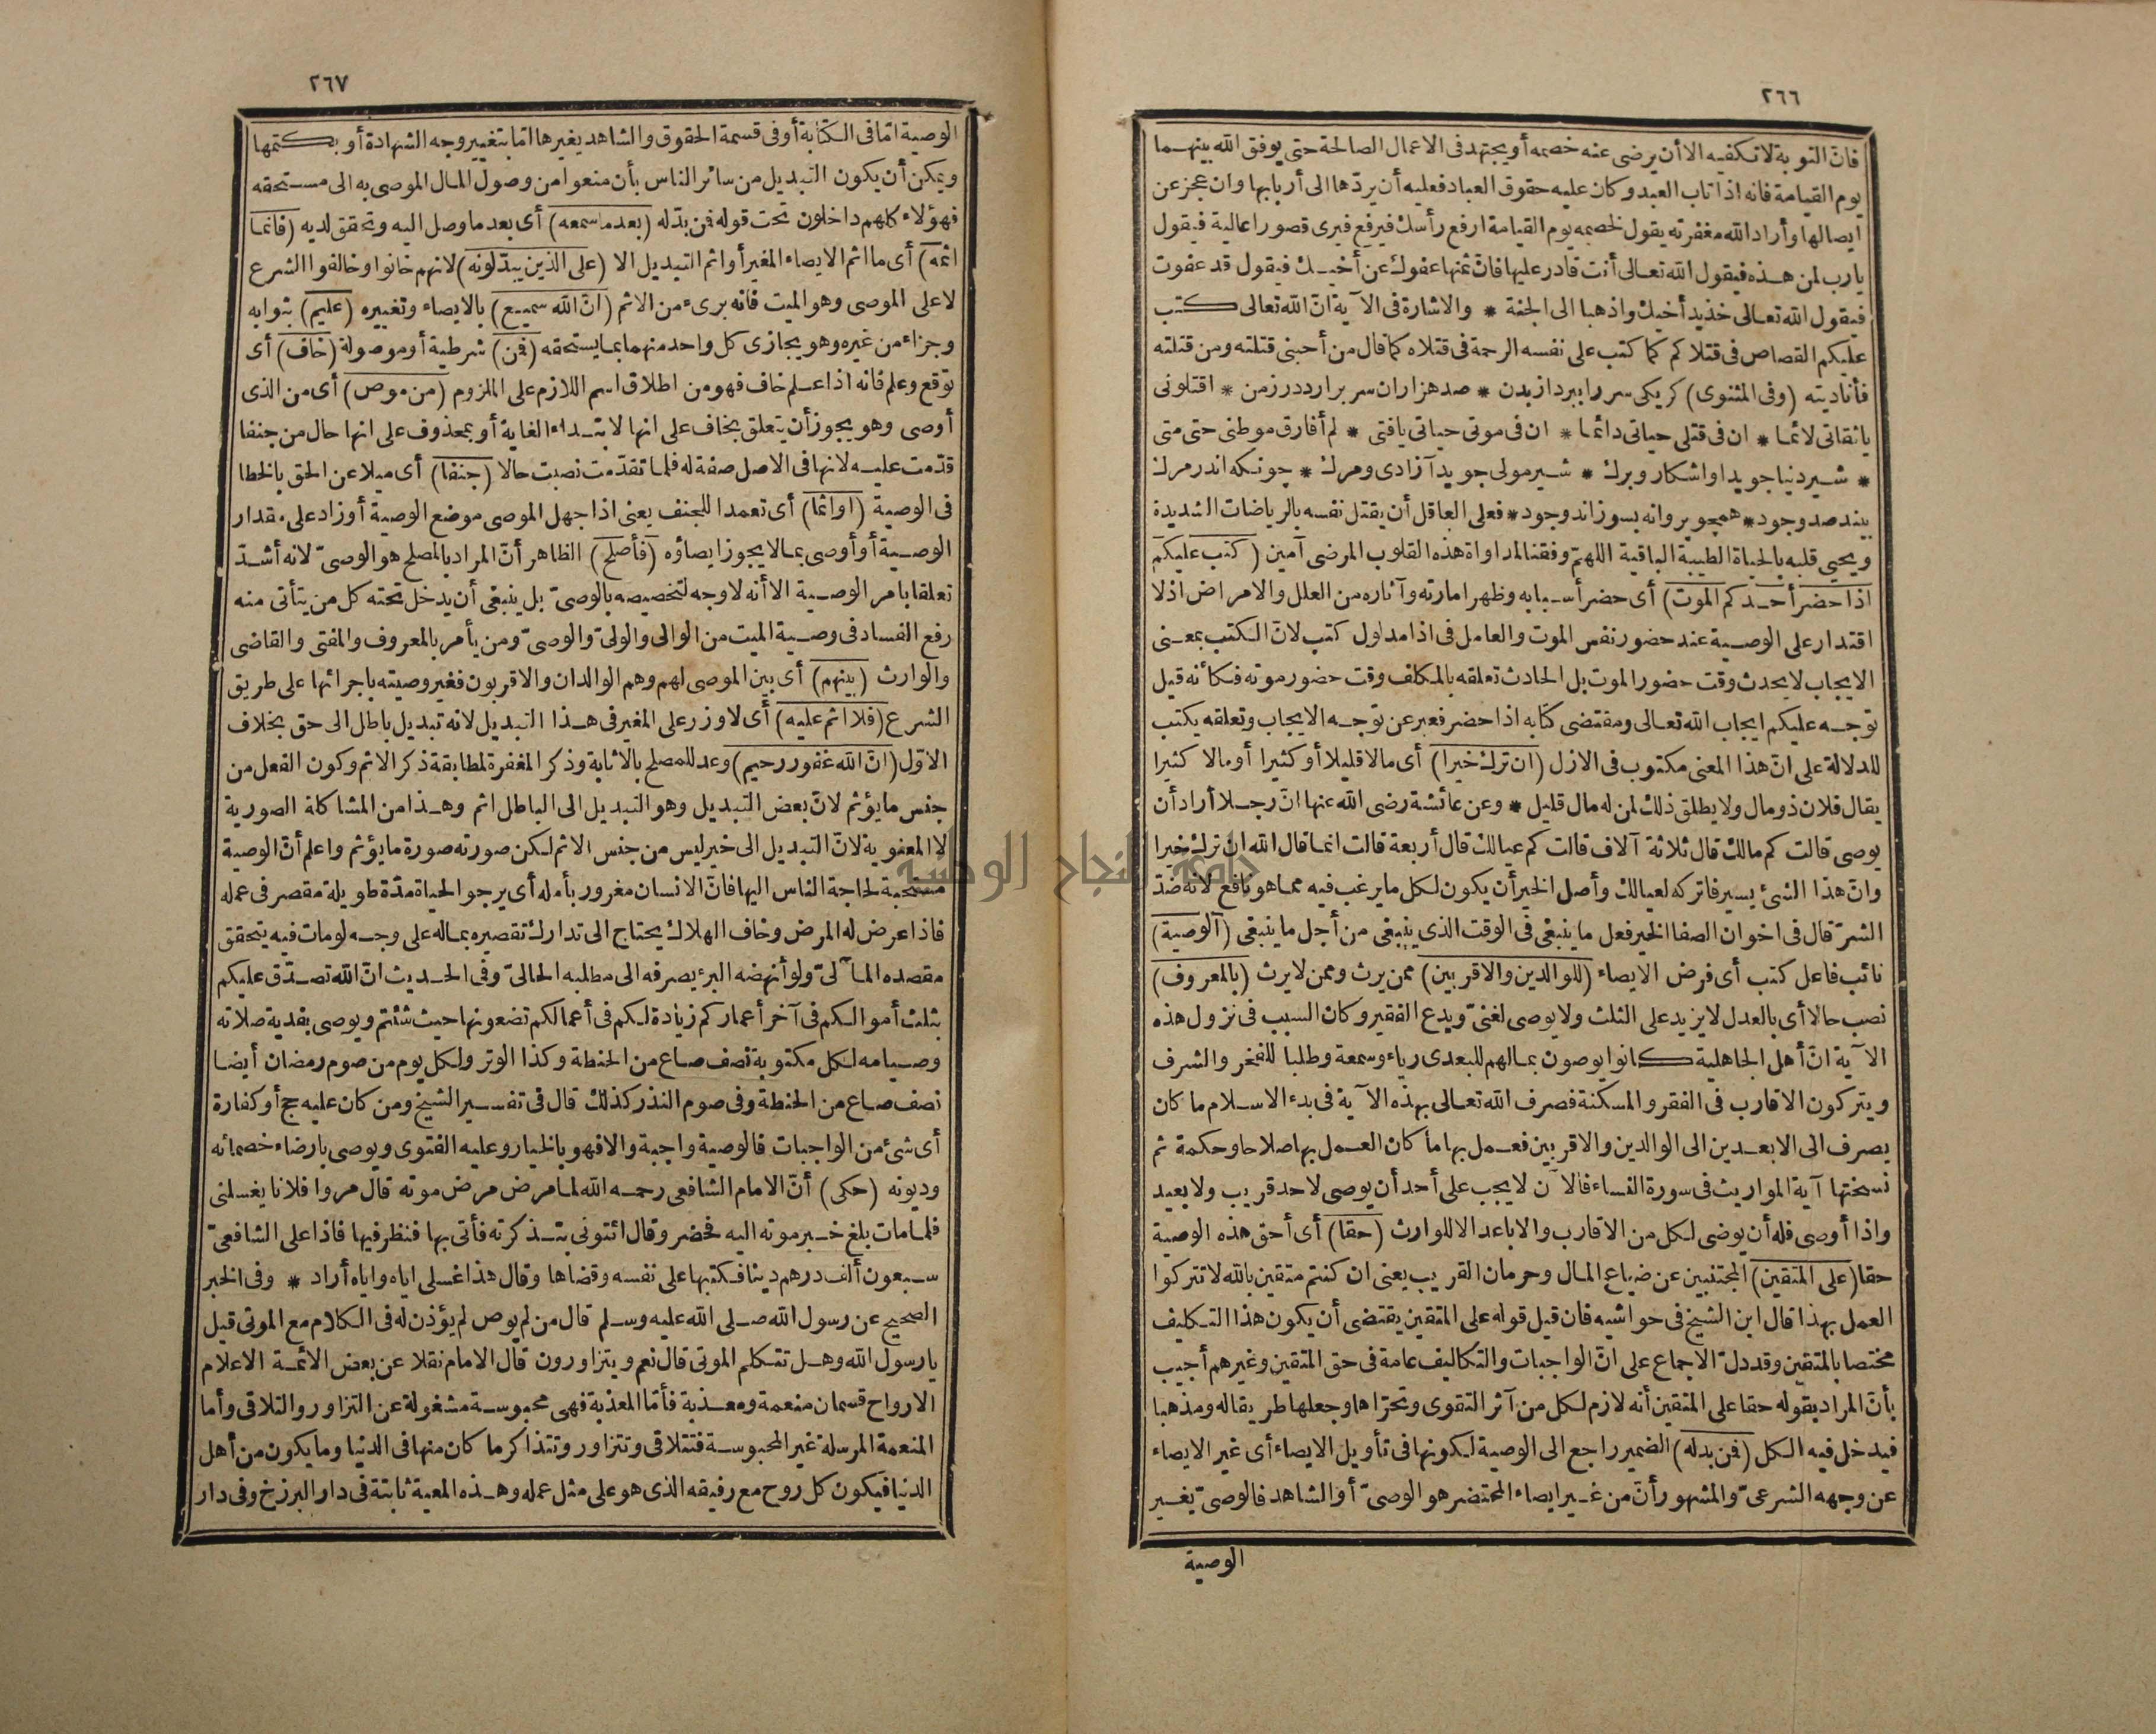 ٢٦٦
فانّ التوبة لا تكفيه الا أن يرضى عنه خصمه أو يجتهد فى الاعمال الصالحة حتى يوفق الله بينهما
يوم القيامة فانه اذا تاب العبد وكان عليه حقوق العباد فعليه أن يردّها الى أربابها وان عجز عن
ايصالها وأراد الله مغفرته يقول لخصمه يوم القيامة ارفع رأسك فيرفع فيرى قصورا عالية فيقول
يارب لمن هذه فيقول الله تعالى أنت قادر عليها فانّ ثمنها عفوك عن أخيك فيقول قد عفوت
فيقول الله تعالى خذ بيد أخيك واذهبا الى الجنة * والاشارة فى الآية انّ الله تعالى كتب
عليكم القصاص فى قتلاكم كما كتب على نفسه الرحمة فى قتلاه كما قال من أحبنى قتلته ومن قتلته
فأنا ديته (وفى المثنوى) كر يكى سر را ببرد از بدن * صد هزاران سر برارد در زمن * اقتلونى
يا ثقاتى لائما * ان فى قتلى حياتى دائما * ان فى موتى حياتى يا فتى * لم أفارق موطنى حتى متى
* شير دنيا جويد او اشكار وبرك * شير مولى جويد آزادى ومرك * چونكه اندر مرك
بيند صد وجود * همچو پروانه بسوزاند وجود * فعلى العاقل أن يقتل نفسه بالرياضات الشديدة
ويحيى قلبه بالحياة الطيبة الباقية اللهمّ وفقنا لمداواة هذه القلوب المرضى آمين (كتب عليكم
اذا حضر أحدكم الموت) أى حضر أسبابه وظهر امارته وآثاره من العلل والامراض اذ لا
اقتدار على الوصية عند حضور نفس الموت والعامل فى اذا مدلول كتب لانّ الكتب بمعنى
الايجاب لا يحدث وقت حضور الموت بل الحادث تعلقه بالمكلف وقت حضور موته فكأنه قيل
توجه عليكم ايجاب الله تعالى ومقتضى كتابه اذا حضر فعبر عن توجه الايجاب وتعلقه بكتب
للدلالة على انّ هذا المعنى مكتوب فى الازل (ان ترك خيرا) أى مالا قليلا أو كثيرا أو مالا كثيرا
يقال فلان ذو مال ولا يطلق ذلك لمن له مال قليل * وعن عائشة رضى الله عنها انّ رجلا أراد أن
يوصى قالت كم مالك قال ثلاثة آلاف قالت كم عيالك قال أربعة قالت انما قال الله ان ترك خيرا
وانّ هذا الشئ يسير فاتركه لعيالك وأصل الخير أن يكون لكل ما يرغب فيه مما هو نافع لانه ضدّ
الشرّ قال فى اخوان الصفا الخير فعل ما ينبغى فى الوقت الذى ينبغى من أجل ما ينبغى (الوصية)
نائب فاعل كتب أى فرض الايصاء (للوالدين والاقربين) ممن يرث وممن لا يرث (بالمعروف)
نصب حالا أى بالعدل لا يزيد على الثلث ولا يوصى لغنىّ ويدع الفقير وكان السبب فى نزول هذه
الآية انّ أهل الجاهلية كانوا يوصون بمالهم للبعدى رياء وسمعة وطلبا للفخر والشرف
ويتركون الاقارب فى الفقر والمسكنة فصرف الله تعالى بهذه الآية فى بدء الاسلام ما كان
يصرف الى الابعدين الى الوالدين والاقربين فعمل بها ما كان العمل بها صلاحا وحكمة ثم
نسختها آية المواريث فى سورة النساء فالآن لا يجب على أحد أن يوصى لاحد قريب ولا بعيد
واذا أوصى فله أن يوصى لكل من الاقارب والاباعد الا للوارث (حقا) أى أحق هذه الوصية
حقا (على المتقين) المجتنبين عن ضياع المال وحرمان القريب يعنى ان كنتم متقين بالله لا تتركوا
العمل بهذا قال ابن الشيخ فى حواشيه فان قيل قوله على المتقين يقتضى أن يكون هذا التكليف
مختصا بالمتقين وقد دلّ الاجماع على انّ الواجبات والتكاليف عامة فى حق المتقين وغيرهم أجيب
بأنّ المراد بقوله حقا على المتقين أنه لازم لكل من آثر التقوى وتحرّاها وجعلها طريقا له ومذهبا
فيدخل فيه الكل (فمن بدله) الضمير راجع الى الوصية لكونها فى تأويل الايصاء أى غير الايصاء
عن وجهه الشرعىّ والمشهور أنّ من غير ايصاء المحتضر هو الوصىّ أو الشاهد فالوصىّ يغير
الوصية
٢٦٧
الوصية امّا فى الكتابة أو فى قسمة الحقوق والشاهد يغيرها امّا بتغيير وجه الشهادة أو بكتمها
ويمكن أن يكون التبديل من سائر الناس بأن منعوا من وصول المال الموصى به الى مستحقه
فهؤلاء كلهم داخلون تحت قوله فمن بدّله (بعد ما سمعه) أى بعد ما وصل اليه وتحقق لديه (فانما
اثمه) أى ما اثم الايصاء المغير أو اثم التبديل الا (على الذين يبدّلونه) لانهم خانوا وخالفوا الشرع
لا على الموصى وهو الميت فانه برىء من الاثم (انّ الله سميع) بالايصاء وتغييره (عليم) بثوابه
وجزاء من غيره وهو يجازى كل واحد منهما بما يستحقه (فمن) شرطية أو موصولة (خاف) أى
توقع وعلم فانه اذا علم خاف فهو من اطلاق اسم اللازم على الملزوم (من موص) أى من الذى
أوصى وهو يجوز أن يتعلق بخاف على انها لابتداء الغاية أو بمحذوف على انها حال من جنفا
قدّمت عليه لانها فى الاصل صفة له فلما تقدّمت نصبت حالا (جنفا) أى ميلا عن الحق بالخطا
فى الوصية (او اثما) أى تعمدا للجنف يعنى اذا جهل الموصى موضع الوصية أو زاد على مقدار
الوصية أو أوصى بما لا يجوز ايصاؤه (فأصلح) الظاهر أنّ المراد بالمصلح هو الوصىّ لانه أشدّ
تعلقا بامر الوصية الا أنه لا وجه لتخصيصه بالوصىّ بل ينبغى أن يدخل تحته كل من يتأتى منه
رفع الفساد فى وصية الميت من الوالى والولىّ والوصىّ ومن يأمر بالمعروف والمفتى والقاضى
والوارث (بينهم) أى بين الموصى لهم وهم الوالدان والاقربون فغير وصيته باجرائها على طريق
الشرع (فلا اثم عليه) أى لا وزر على المغير فى هذا التبديل لانه تبديل باطل الى حق بخلاف
الاوّل (انّ الله غفور رحيم) وعد للمصلح بالاثابة وذكر المغفرة لمطابقة ذكر الاثم وكون الفعل من
جنس ما يؤثم لانّ بعض التبديل وهو التبديل الى الباطل اثم وهذا من المشاكلة الصورية
لا المعنوية لانّ التبديل الى خير ليس من جنس الاثم لكن صورته صورة ما يؤثم واعلم أنّ الوصية
مستحبة لحاجة الناس اليها فانّ الانسان مغرور بأمله أى يرجو الحياة مدّة طويلة مقصر فى عمله
فاذا عرض له المرض وخاف الهلاك يحتاج الى تدارك تقصيره بماله على وجه لو مات فيه يتحقق
مقصده المآلىّ ولو أنهضه البرء يصرفه الى مطلبه الحالىّ وفى الحديث انّ الله تصدّق عليكم
بثلث أموالكم فى آخر أعماركم زيادة لكم فى أعمالكم تضعونها حيث شئتم ويوصى بفدية صلاته
وصيامه لكل مكتوبة نصف صاع من الحنطة وكذا الوتر ولكل يوم من صوم رمضان أيضا
نصف صاع من الحنطة وفى صوم النذر كذلك قال فى تفسير الشيخ ومن كان عليه حج أو كفارة
أى شئ من الواجبات فالوصية واجبة والا فهو بالخيار وعليه الفتوى ويوصى بارضاء خصمائه
وديونه (حكى) أنّ الامام الشافعى رحمه الله لما مرض مرض موته قال مروا فلانا يغسلنى
فلما مات بلغ خبر موته اليه فحضر وقال ائتونى بتذكرته فأتى بها فنظر فيها فاذا على الشافعىّ
سبعون ألف درهم دينا فكتبها على نفسه وقضاها وقال هذا غسلى اياه واياه أراد * وفى الخبر
الصحيح عن رسول الله صلى الله عليه وسلم قال من لم يوص لم يؤذن له فى الكلام مع الموتى قيل
يا رسول الله وهل تتكلم الموتى قال نعم ويتزاورون قال الامام نقلا عن بعض الائمة الاعلام
الارواح قسمان منعمة ومعذبة فأمّا المعذبة فهى محبوسة مشغولة عن التزاور والتلاقى وأما
المنعمة المرسلة غير المحبوسة فتتلاقى وتتزاور وتتذاكر ما كان منها فى الدنيا وما يكون من أهل
الدنيا فيكون كل روح مع رفيقه الذى هو على مثل عمله وهذه المعية ثابتة فى دار البرزخ وفى دار
جامعة النجاح الوطنية